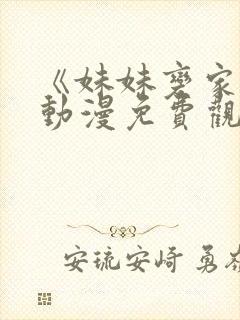 《妹妹变家
動漫免費觀
安琉安崎 勇